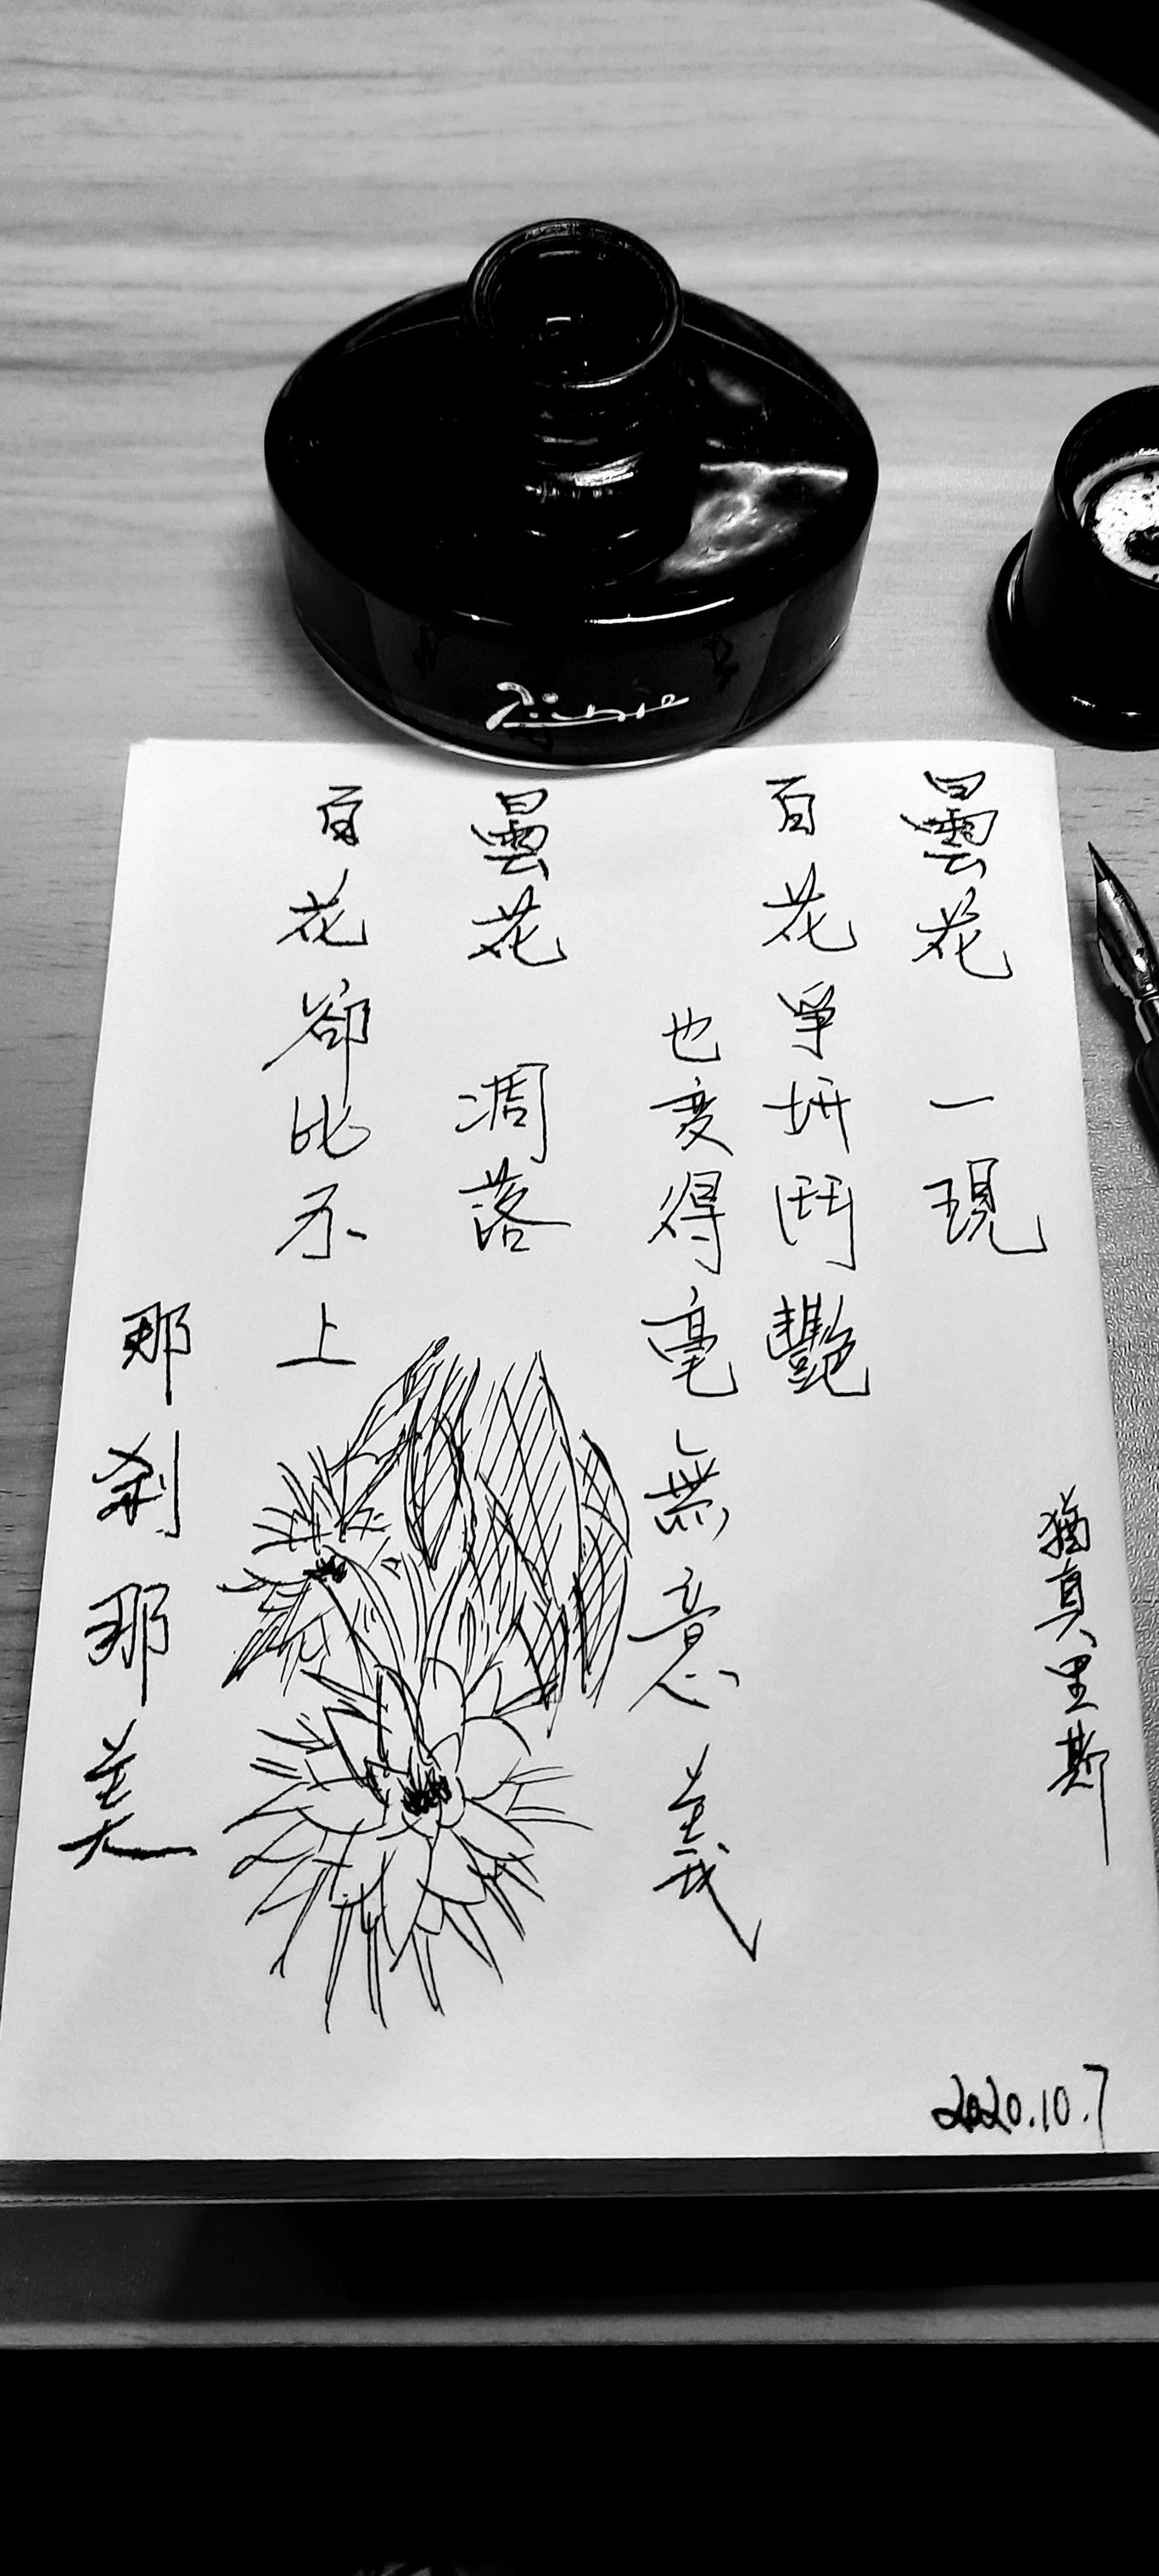 曇花 一現
百花爭妍鬥艷
也变得毫無意義
曇花 凋落
百花卻比不上
那刹那美
猶真里斯
2020.10.7
Jinhao